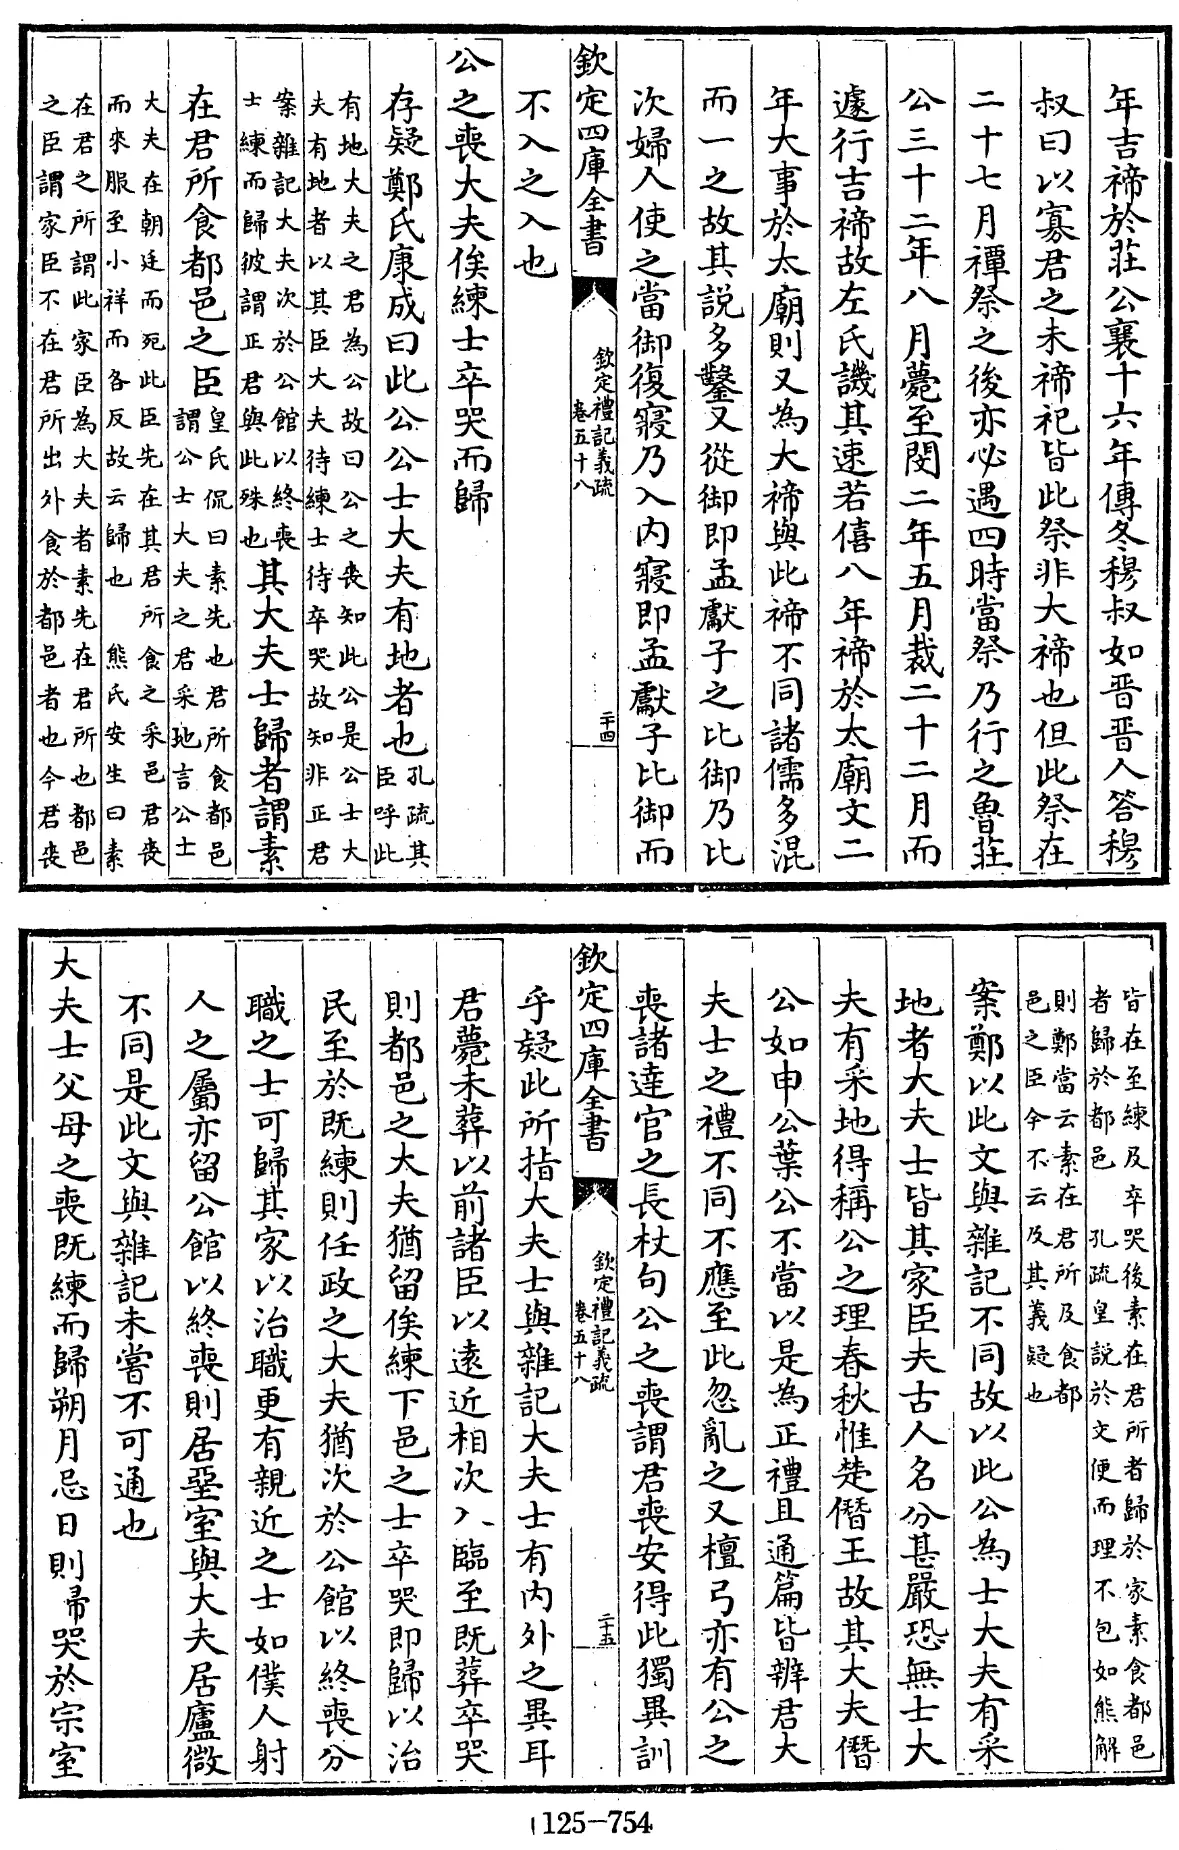 年吉禘於莊公襄十六年傳冬穆叔如晋晋人答穆
叔曰以寡君之未禘祀皆此祭非大禘也但此祭在
二十七月禫祭之後亦必遇四時當祭乃行之魯莊
公三十二年八月薨至閔二年五月裁二十二月而
遽行吉禘故左氏譏其速若僖八年禘於太廟文二
年大事於太廟則又為大禘與此禘不同諸儒多混
而一之故其説多鑿又從御即孟獻子之比御乃比
次婦人使之當御復寢乃入内寢即孟獻子比御而
不入之入也
欽定四庫全書
欽定禮記義疏
卷五十八
二十四
公之喪大夫俟練士卒哭而歸
存疑鄭氏康成曰此公公士大夫有地者也
孔疏其
臣呼此
有地大夫之君為公故曰公之喪知此公是公士大
夫有地者以其臣大夫待練士待卒哭故知非正君
案雜記大夫次於公館以終喪
士練而歸彼謂正君與此殊也
其大夫士歸者謂素
在君所食都邑之臣
皇氏侃曰素先也君所食都邑
謂公士大夫之君采地言公士
大夫在朝廷而死此臣先在其君所食之采邑君喪
而來服至小祥而各反故云歸也 熊氏安生曰素
在君之所謂此家臣為大夫者素先在君所也都邑
之臣謂家臣不在君所出外食於都邑者也今君喪
皆在至練及卒哭後素在君所者歸於家素食都邑
者歸於都邑 孔疏皇説於文便而理不包如熊解
則鄭當云素在君所及食都
邑之臣今不云及其義疑也
案鄭以此文與雜記不同故以此公為士大夫有采
地者大夫士皆其家臣夫古人名分甚嚴恐無士大
夫有采地得稱公之理春秋惟楚僭王故其大夫僭
公如申公葉公不當以是為正禮且通篇皆辨君大
夫士之禮不同不應至此忽亂之又檀弓亦有公之
喪諸達官之長杖句公之喪謂君喪安得此獨異訓
欽定四庫全書
欽定禮記義疏
卷五十八
二十五
乎疑此所指大夫士與雜記大夫士有内外之異耳
君薨未葬以前諸臣以遠近相次入臨至既葬卒哭
則都邑之大夫猶留俟練下邑之士卒哭即歸以治
民至於既練則任政之大夫猶次於公館以終喪分
職之士可歸其家以治職更有親近之士如僕人射
人之屬亦留公館以終喪則居堊室與大夫居廬微
不同是此文與雜記未嘗不可通也
大夫士父母之喪既練而歸朔月忌日則帚哭於宗室
125-754